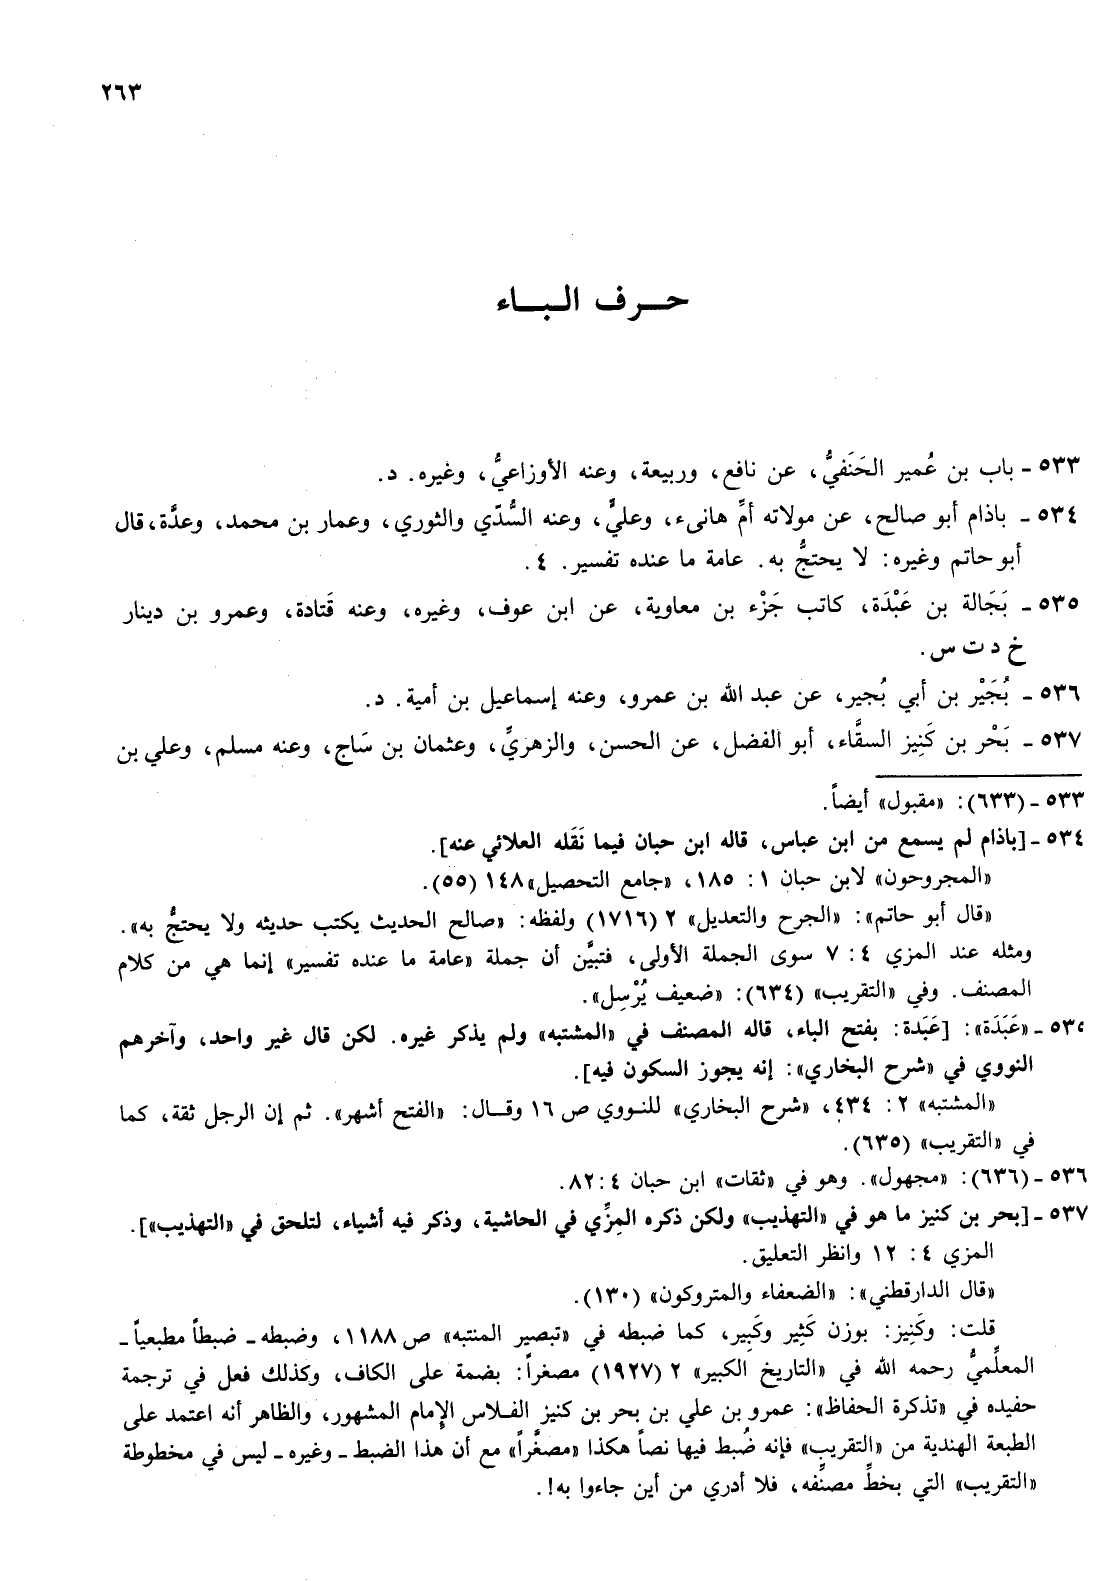 ٢٦٣
حـرف الـبـاء
٥٣٣ ـ باب بن عُمير الحَنَفيُّ، عن نافع، وربيعة، وعنه الأوزاعيُّ، وغيره. د.
٥٣٤ ـ باذام أبو صالح، عن مولاته أمِّ هانىء، وعليٍّ، وعنه السُّدّي والثوري، وعمار بن محمد، وعدَّة، قال
أبو حاتم وغيره: لا يحتجُّ به. عامة ما عنده تفسير. ٤.
٥٣٥ ـ بَجَالة بن عَبْدَة، كاتب جَزْء بن معاوية، عن ابن عوف، وغيره، وعنه قَتادة، وعمرو بن دينار
خ د ت س.
٥٣٦ ـ بُجَيْر بن أبي بُجير، عن عبد الله بن عمرو، وعنه إسماعيل بن أمية. د.
٥٣٧ ـ بَحْر بن كَنِيز السقَّاء، أبو الفضل، عن الحسن، والزهريِّ، وعثمان بن سَاج، وعنه مسلم، وعلي بن
٥٣٣ ـ (٦٣٣): «مقبول» أيضاً.
٥٣٤ ـ [باذام لم يسمع من ابن عباس، قاله ابن حبان فيما نَقَله العلائي عنه].
«المجروحون» لابن حبان ١: ١٨٥، «جامع التحصيل» ١٤٨ (٥٥).
«قال أبو حاتم»: «الجرح والتعديل» ٢ (١٧١٦) ولفظه: «صالح الحديث يكتب حديثه ولا يحتجُّ به».
ومثله عند المزي ٤: ٧ سوى الجملة الأولى، فتبيَّن أن جملة «عامة ما عنده تفسير» إنما هي من كلام
المصنف. وفي «التقريب» (٦٣٤): «ضعيف يُرْسِل».
٥٣٥ ـ «عَبَدَة»: [عَبَدة: بفتح الباء، قاله المصنف في «المشتبه» ولم يذكر غيره. لكن قال غير واحد، وآخرهم
النووي في «شرح البخاري»: إنه يجوز السكون فيه].
«المشتبه» ٢: ٤٣٤، «شرح البخاري» للنووي ص ١٦ وقال: «الفتح أشهر». ثم إن الرجل ثقة، كما
في «التقريب» (٦٣٥).
٥٣٦ ـ (٦٣٦): «مجهول». وهو في «ثقات» ابن حبان ٤: ٨٢.
٥٣٧ ـ [بحر بن كنيز ما هو في «التهذيب» ولكن ذكره المِزِّي في الحاشية، وذكر فيه أشياء، لتلحق في «التهذيب»].
المزي ٤: ١٢ وانظر التعليق.
«قال الدارقطني»: «الضعفاء والمتروكون» (١٣٠).
قلت: وكَنِيز: بوزن كَثِير وكَبِير، كما ضبطه في «تبصير المنتبه» ص ١١٨٨، وضبطه ـ ضبطاً مطبعياً ـ
المعلِّميُّ رحمه الله في «التاريخ الكبير» ٢ (١٩٢٧) مصغراً: بضمة على الكاف، وكذلك فعل في ترجمة
حفيده في «تذكرة الحفاظ»: عمرو بن علي بن بحر بن كنيز الفلاس الإمام المشهور، والظاهر أنه اعتمد على
الطبعة الهندية من «التقريب» فإنه ضُبط فيها نصاً هكذا «مصغَّراً» مع أن هذا الضبط ـ وغيره ـ ليس في مخطوطة
«التقريب» التي بخطِّ مصنِّفه، فلا أدري من أين جاءوا به!.